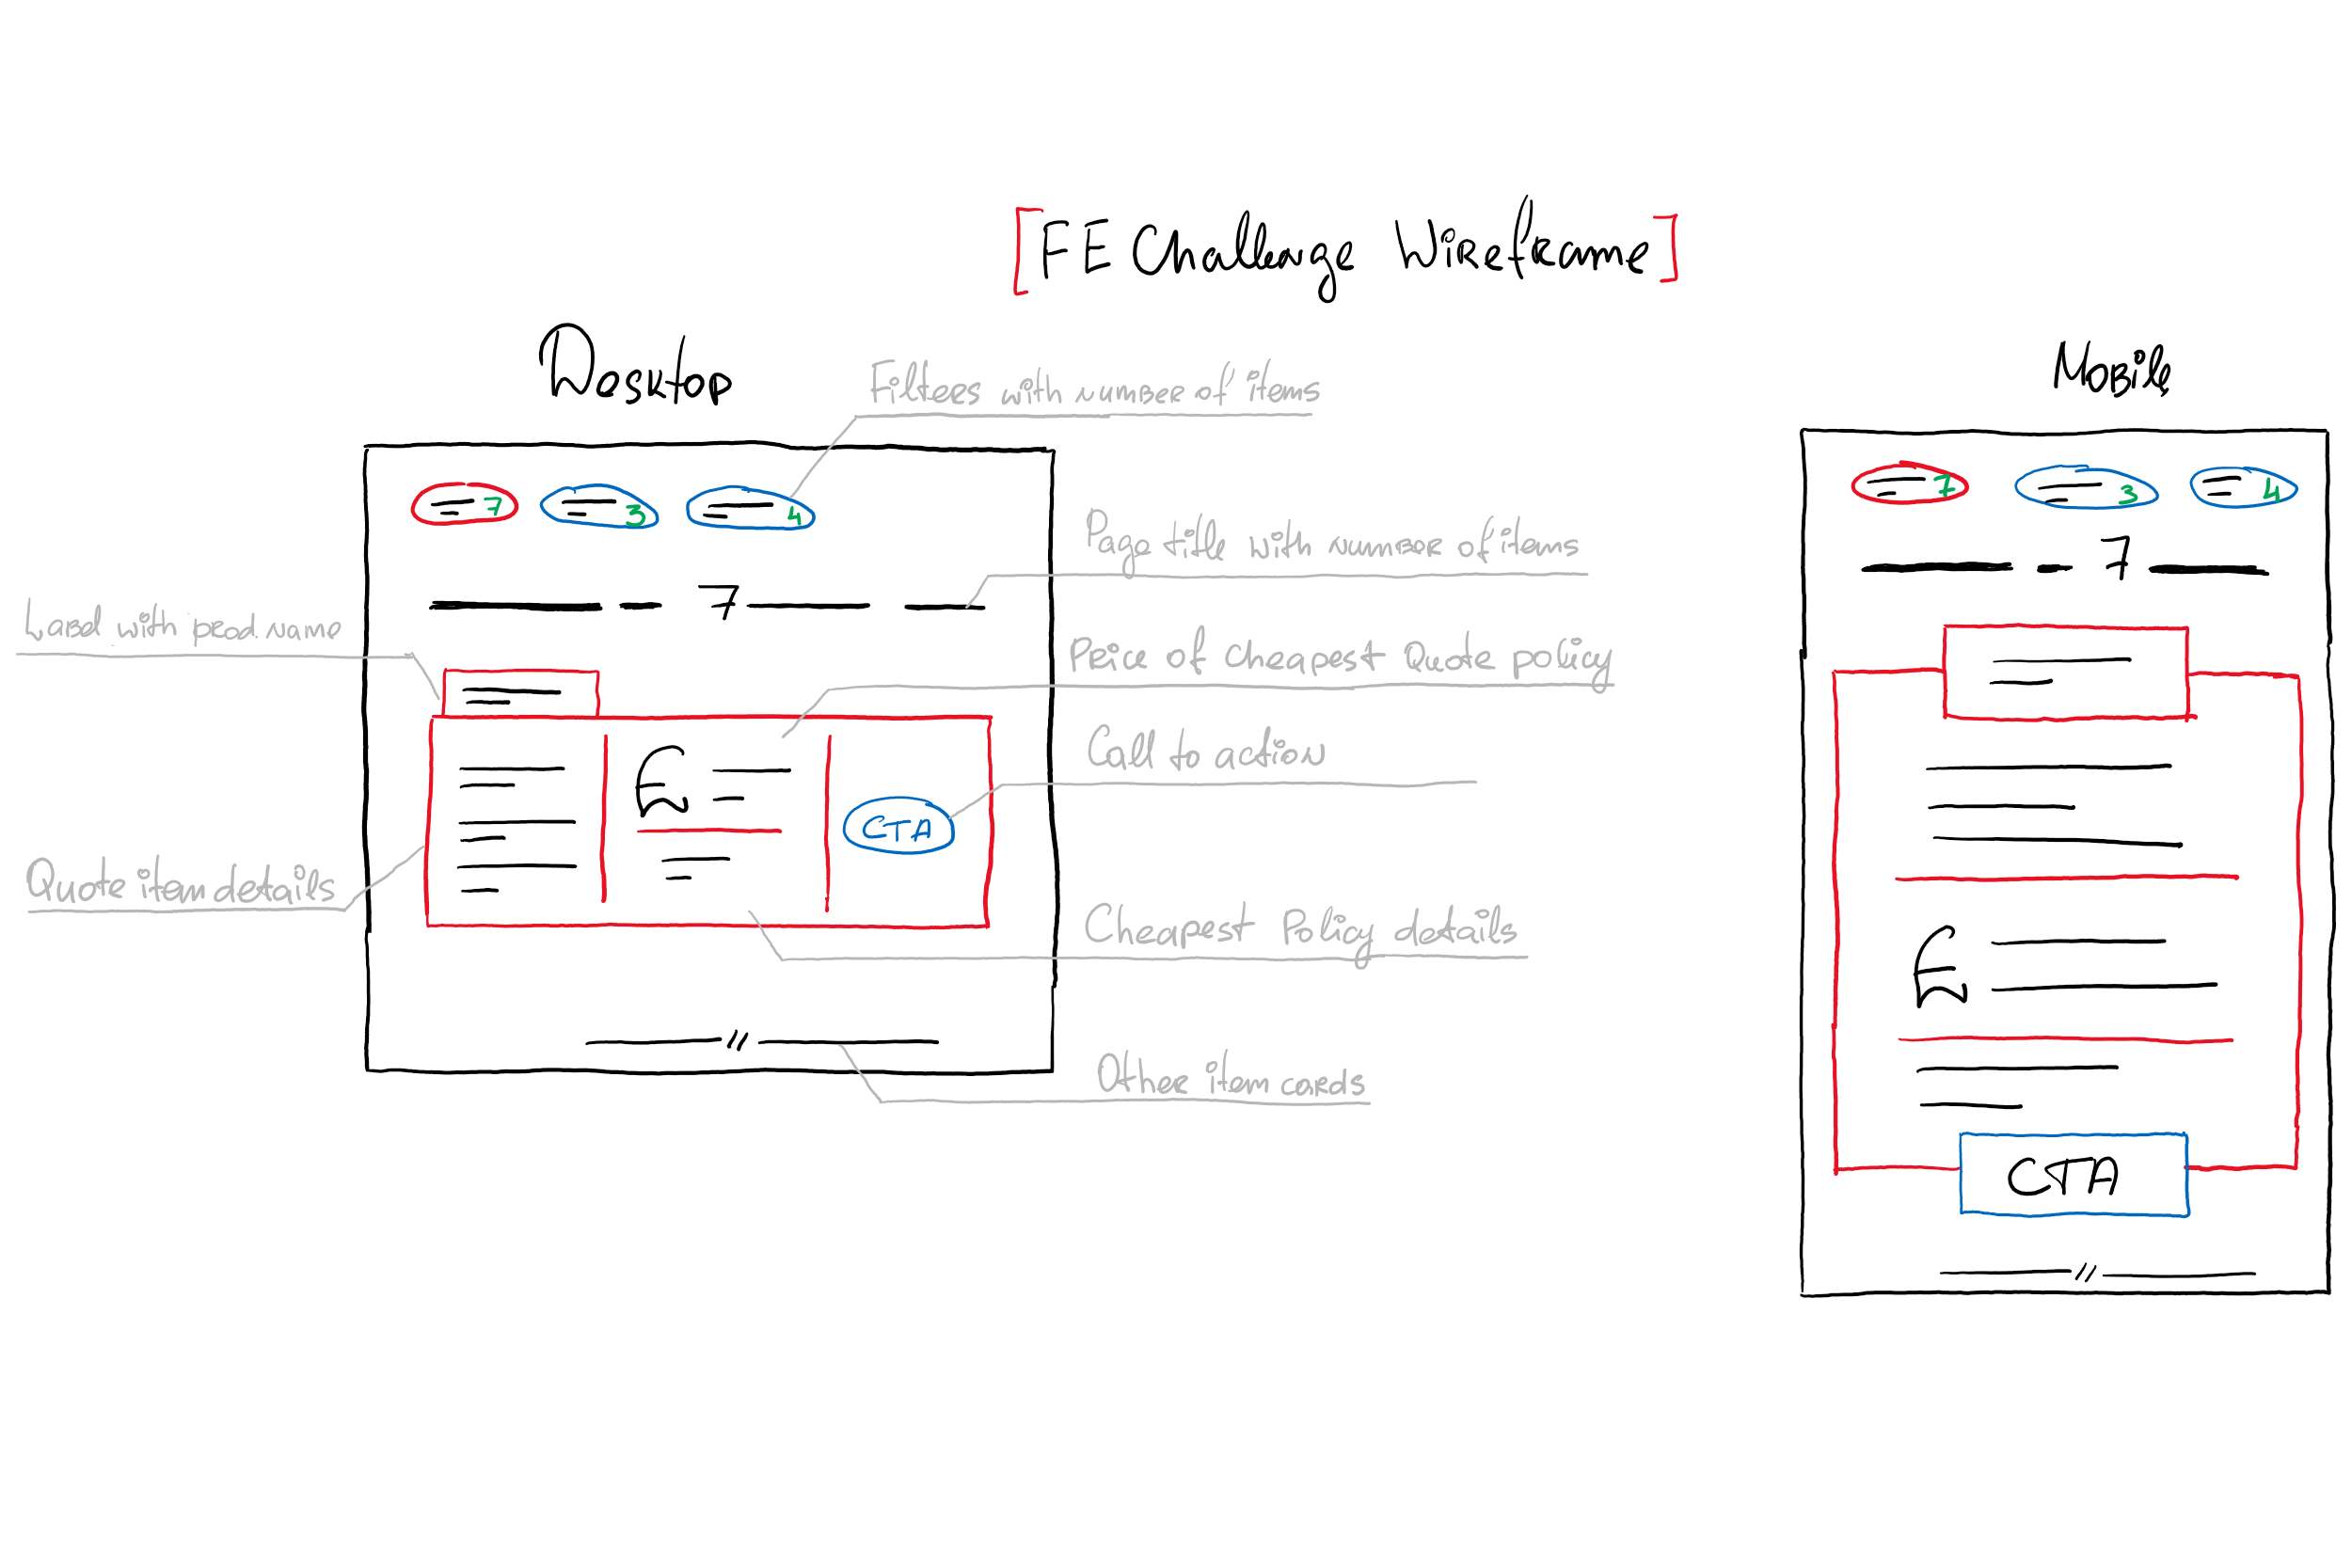 [FE Challenge Wireframe]
Desktop
Mobile
Filters with number of items
7 3 4
Page title with number of items
7
Label with prod. name
Price of cheapest Quote policy
£
Call to action
CTA
Quote item details
Cheapest Policy details
//
Other item cards
7 3 4
7
£
CTA
//